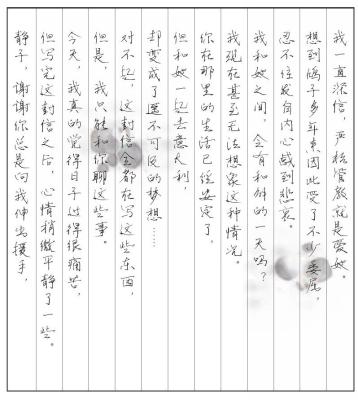 我一直深信，严格管教就是爱她。
想到鸽子多年来因此受了不少委屈，
忍不住发自内心感到悲哀。
我和她之间，会有和解的一天吗？
我现在甚至无法想象这种情况。
你在那里的生活已经安定了，
但和她一起去意大利，
却变成了遥不可及的梦想……
对不起，这封信全都在写这些东西，
但是，我只能和你聊这些事。
今天，我真的觉得日子过得很痛苦，
但写完这封信之后，心情稍微平静了一些。
静子，谢谢你总是向我伸出援手，